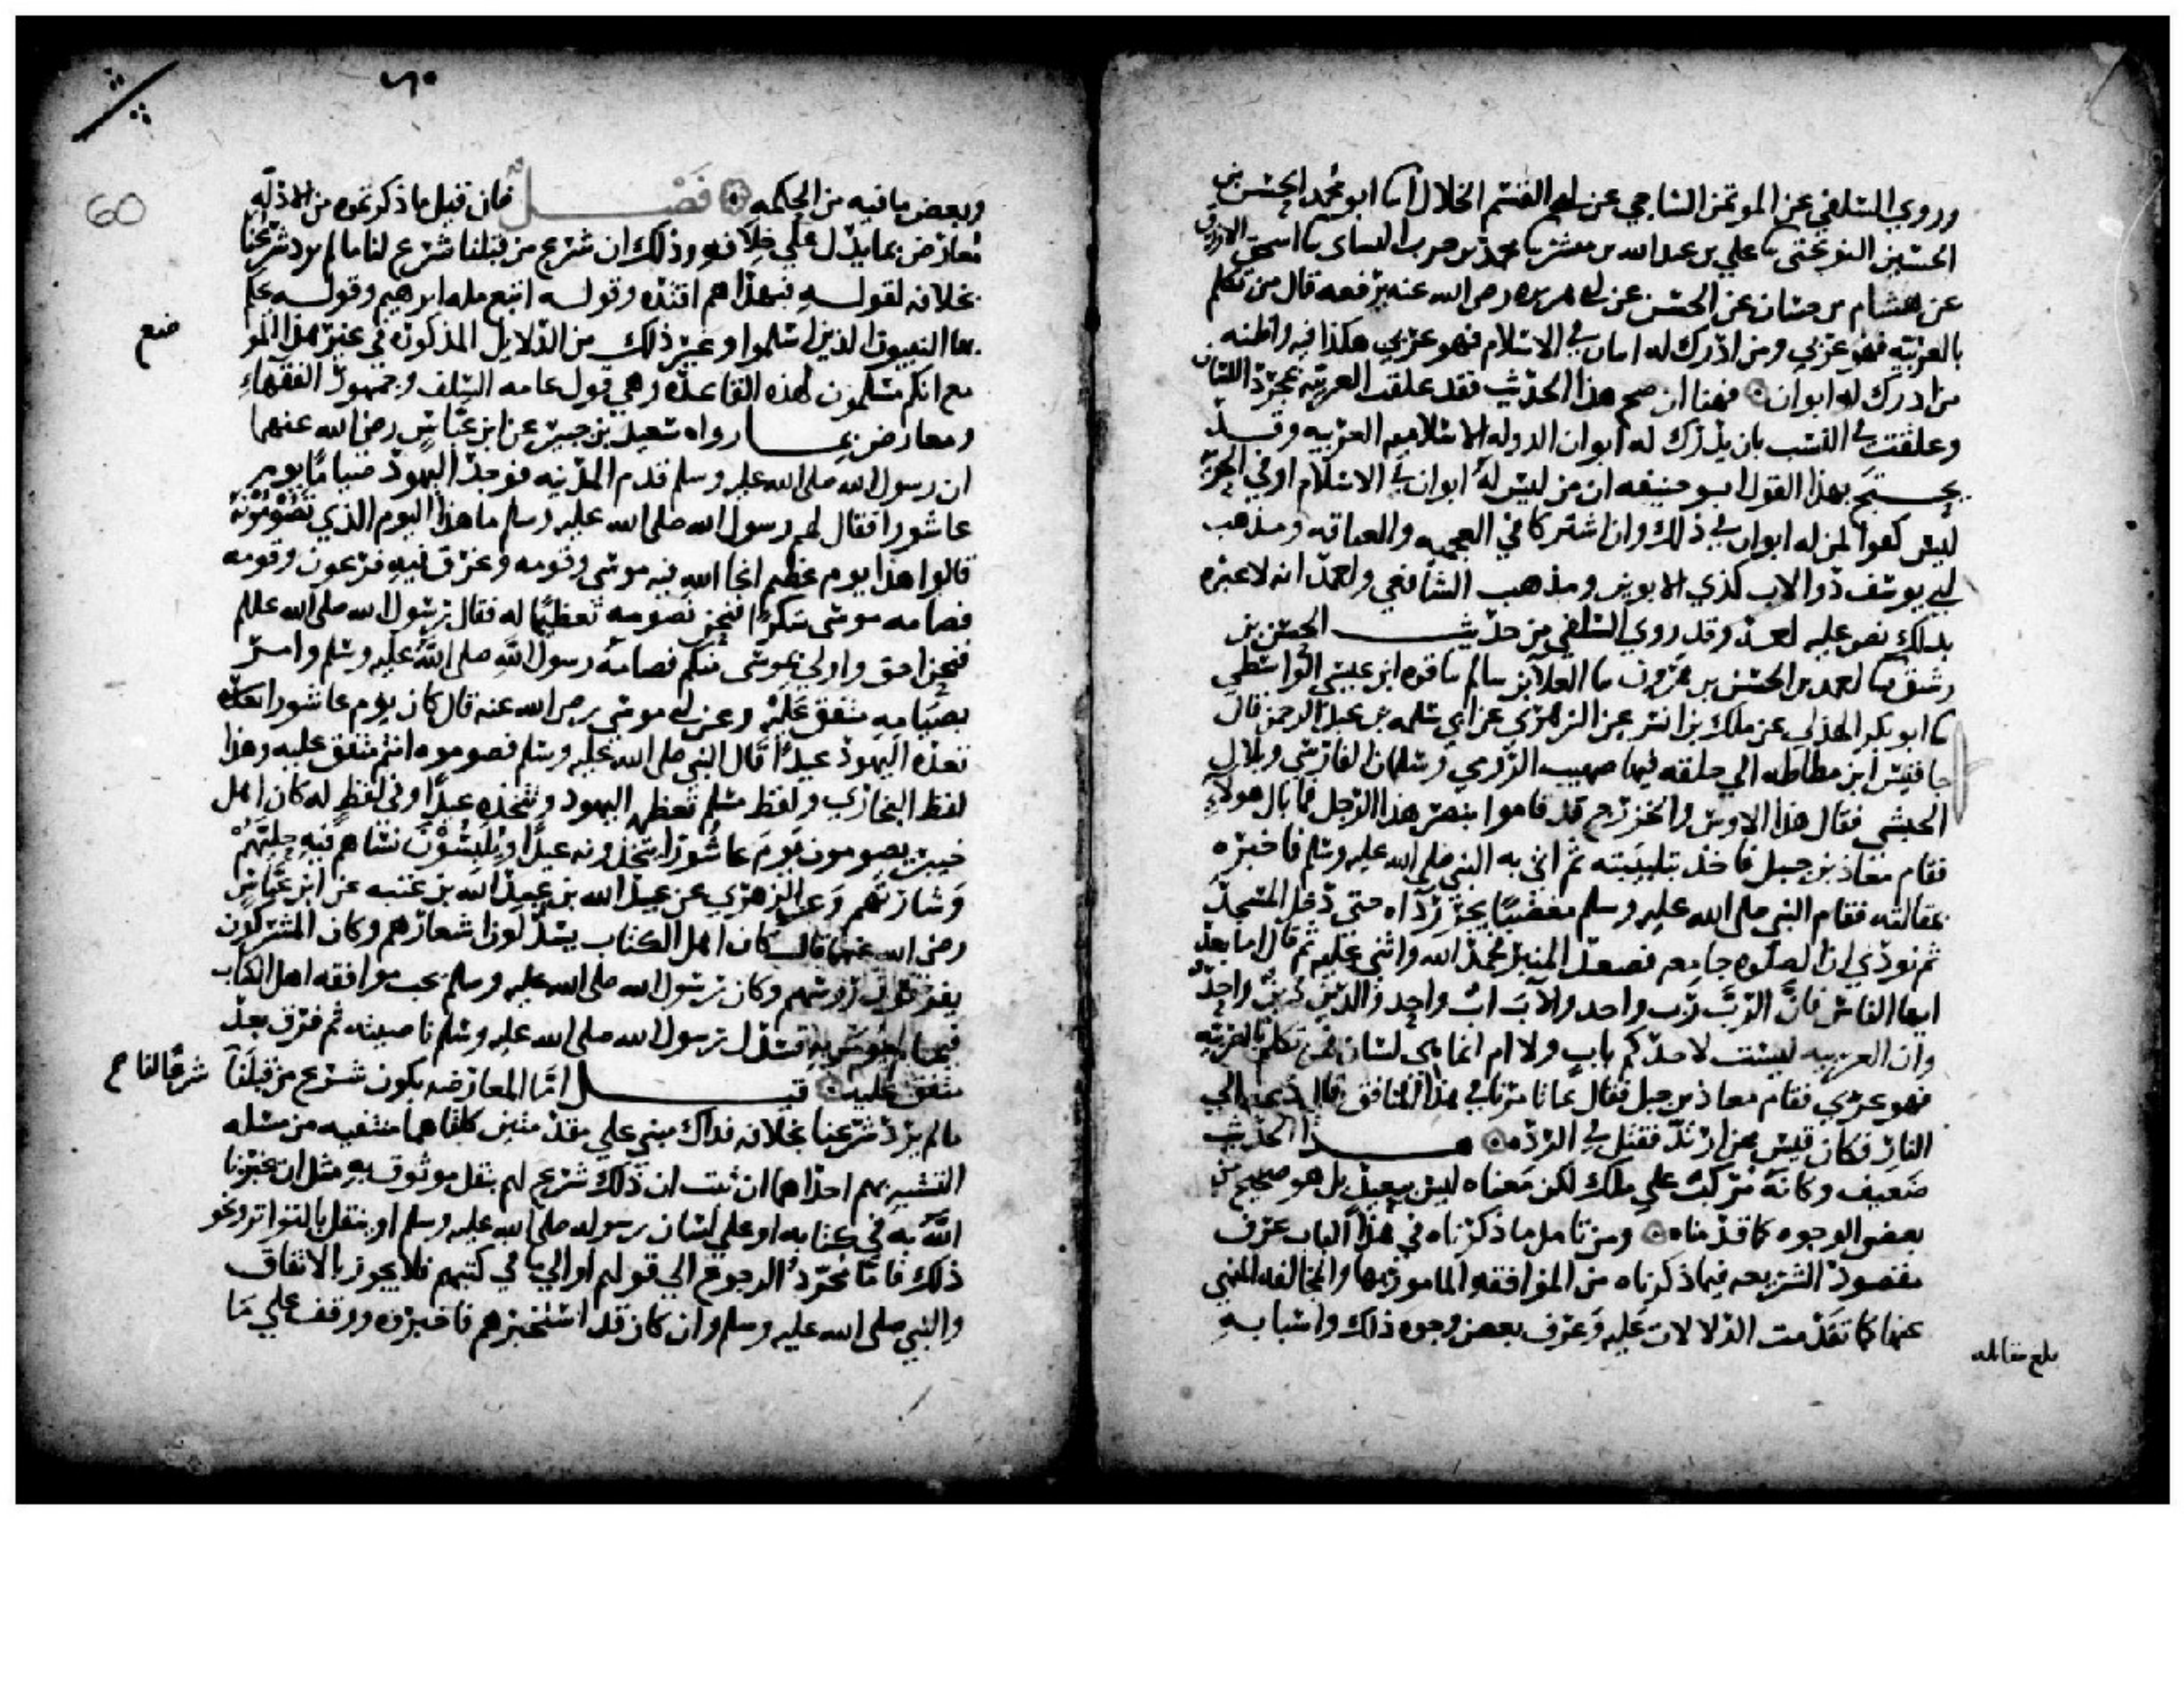 وروي السلفي عن الموتمن الساجي عن ابي القسم الخلال انا ابو محمد الحسن بن
الحسين النوبختي ثنا علي بن عبد الله بن مبشر ثنا محمد بن حرب النساي ثنا اسحق الازرق
عن هشام بن حسان عن الحسن عن ابي هريره رضي الله عنه يرفعه قال من تكلم
بالعربيه فهو عربي ومن ادرك له اثنان في الاسلام فهو عربي هكذا فيه واظنه
من ادرك له ابوان فهنا ان صح هذا الحديث فقد علقت العربيه بمجرد اللسان
وعلقت في النسب بان يدرك له ابوان الدوله الاسلاميه العربيه وقد
يحتج بهذا القول ابو حنيفه ان من ليس له ابوان في الاسلام او في الحريه
ليس كفوا لمن له ابوان في ذلك وان اشتركا في العجميه والعتاقه ومذهب
ابي يوسف ذو الاب كذي الابوين ومذهب الشافعي واحمد انه لا عبره
بذلك نص عليه احمد وقد روي السلفي من حديث الحسن بن
رشيق ثنا احمد بن الحسن بن هرون ثنا العلا بن سالم ثنا قره ابن عيسي الواسطي
ثنا ابو بكر الهذلي عن ملك بن انس عن الزهري عن ابي سلمه بن عبد الرحمن قال
جا قيس ابن مطاطه الي حلقه فيها صهيب الرومي وسلمان الفارسي وبلال
الحبشي فقال هذا الاوس والخزرج قد قاموا بنصر هذا الرجل فما بال هولاء
فقام معاذ بن جبل فاخذ بتلبيبه ثم اتى به النبي صلى الله عليه وسلم فاخبره
بمقالته فقام النبي صلى الله عليه وسلم مغضبا يجر رداه حتى دخل المسجد
ثم نودي ان الصلوه جامعه فصعد المنبر فحمد الله واثني عليه ثم قال اما بعد
ايها الناس فان الرب رب واحد والاب اب واحد والدين دين واحد
وان العربيه ليست لاحدكم باب ولا ام انما هي لسان فمن تكلم بالعربيه
فهو عربي فقام معاذ بن جبل فقال بما تامرنا في هذا المنافق فقال دعه الي
النار فكان قيس ممن ارتد فقتل في الرده هذا الحديث
ضعيف وكانه مركب علي ملك لكن معناه ليس ببعيد بل هو صحيح من
بعض الوجوه كما قدمناه ومن تامل ما ذكرناه في هذا الباب عرف
مقصود الشريعه فيما ذكرناه من الموافقه المامور بها والمخالفه المنهي
عنها كما تقدمت الدلالات عليه وعرف بعض وجوه ذلك واسبابه
بلغ مقابله
٦٠
60
وبعض ما فيه من الحكمه فصل فان قيل ما ذكرتموه من الادله
معارض بما يدل علي خلافه وذلك ان شرع من قبلنا شرع لنا ما لم يرد شرعنا
بخلافه لقوله فبهداهم اقتده وقوله اتبع مله ابرهيم وقوله يحكم
بها النبيون الذين اسلموا وغير ذلك من الدلايل المذكوره في غير هذا الموضع
مع انكم مسلمون لهذه القاعده وهي قول عامه السلف وجمهور الفقهاء
ومعارض بما رواه سعيد بن جبير عن ابن عباس رضي الله عنهما
ان رسول الله صلى الله عليه وسلم قدم المدينه فوجد اليهود صياما يوم
عاشورا فقال لهم رسول الله صلى الله عليه وسلم ما هذا اليوم الذي تصومونه
قالوا هذا يوم عظيم انجا الله فيه موسى وقومه وغرق فيه فرعون وقومه
فصامه موسى شكرا فنحن نصومه تعظيما له فقال رسول الله صلى الله عليه وسلم
فنحن احق واولي بموسى منكم فصامه رسول الله صلى الله عليه وسلم وامر
بصيامه متفق عليه وعن ابي موسى رضي الله عنه قال كان يوم عاشورا
تعده اليهود عيدا قال النبي صلى الله عليه وسلم فصوموه انتم متفق عليه وهذا
لفظ البخاري ولفظ مسلم تعظمه اليهود وتتخذه عيدا وفي لفظ له كان اهل
خيبر يصومون يوم عاشورا يتخذونه عيدا ويلبسون نساهم فيه حليهم
وشارتهم وعن الزهري عن عبيد الله بن عبد الله بن عتبه عن ابن عباس
رضي الله عنهما قال كان اهل الكتاب يسدلون اشعارهم وكان المشركون
يفرقون روسهم وكان رسول الله صلى الله عليه وسلم يحب موافقه اهل الكتاب
فيما لم يومر به فسدل رسول الله صلى الله عليه وسلم ناصيته ثم فرق بعد
متفق عليه قيل اما المعارضه بكون شرع من قبلنا شرعا لنا صح
ما لم يرد شرعنا بخلافه فذاك مبني علي مقدمتين كلتاهما منتفيه من مسله
التشبه بهم احداهما ان ثبت ان ذلك شرع لهم بنقل موثوق به مثل ان يخبرنا
الله به في كتابه او علي لسان رسوله صلى الله عليه وسلم او ينقل بالتواتر ونحو
ذلك فاما مجرد الرجوع الي قولهم او الي ما في كتبهم فلا يجوز بالاتفاق
والنبي صلى الله عليه وسلم وان كان قد استخبرهم فاخبروه ووقف علي ما